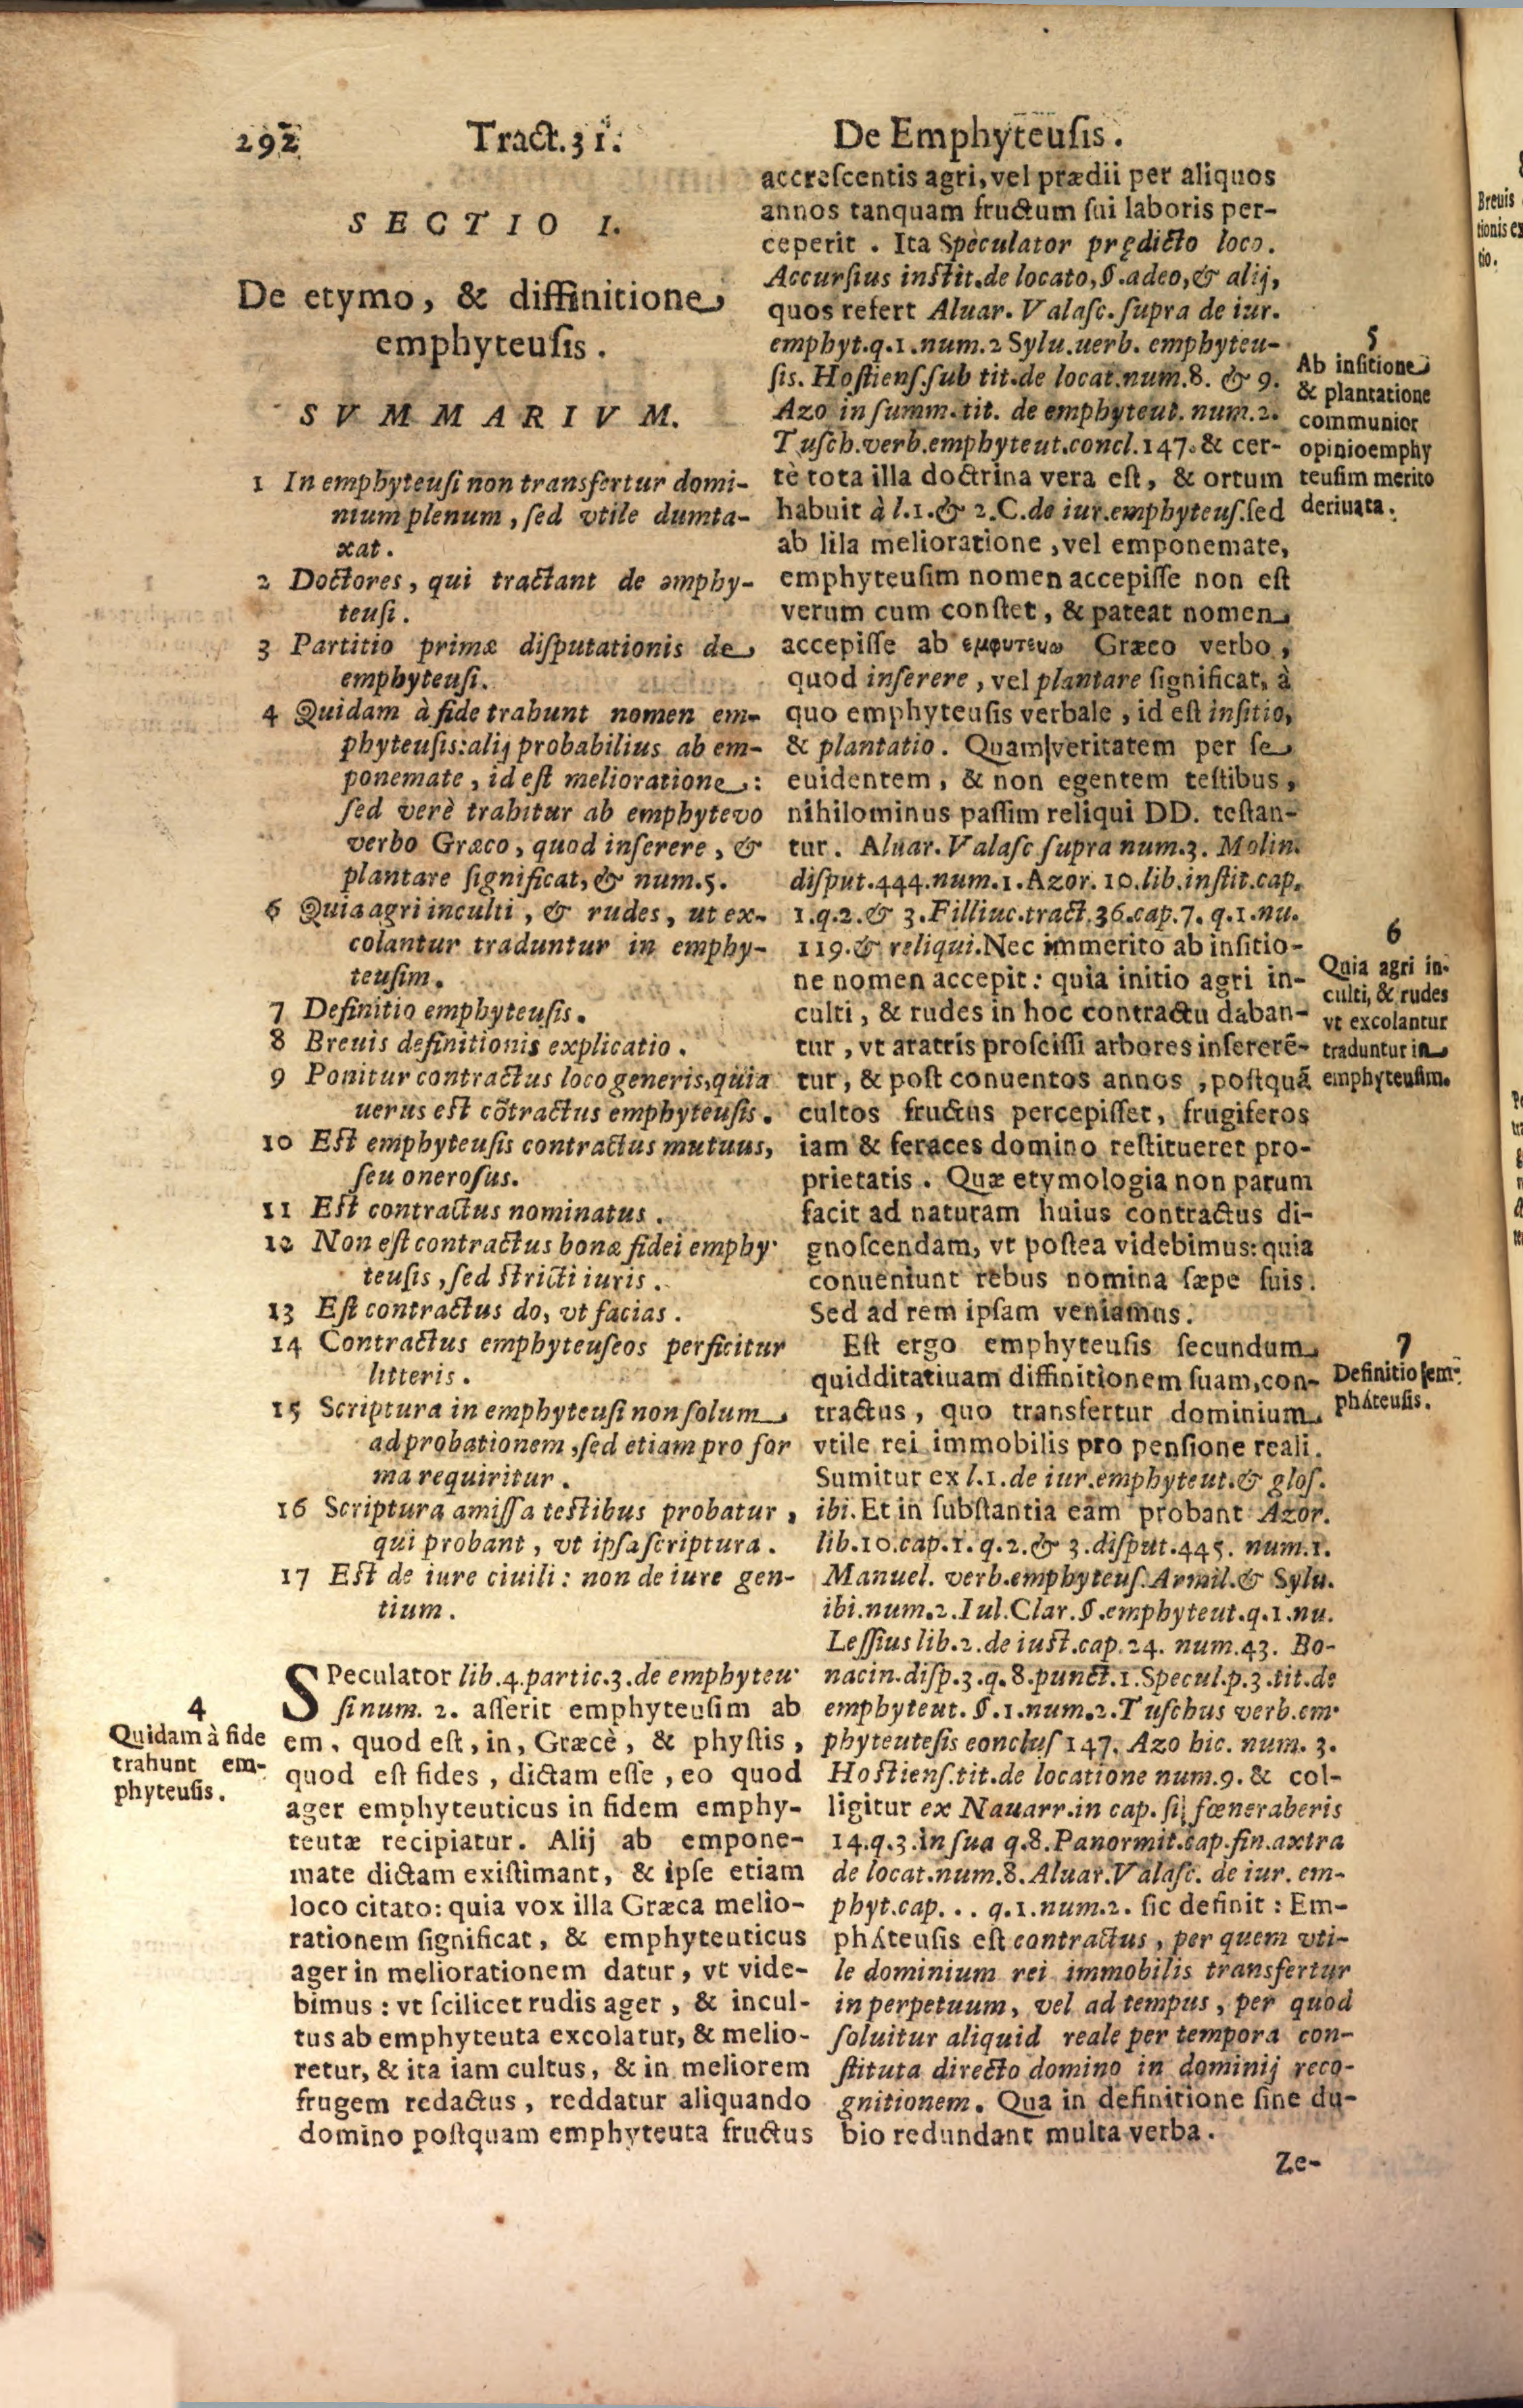 292 Tract.31. De Emphyteusis.
SECTIO I.
De etymo, & diffinitione
emphyteusis.
SVMMARIVM.
1 In emphyteusi non transfertur domi-
nium plenum, sed vtile dumta-
xat.
2 Doctores, qui tractant de emphy-
teusi.
3 Partitio primæ disputationis de
emphyteusi.
4 Quidam à fide trahunt nomen em-
phyteusis: alij probabilius ab em-
ponemate, id est melioratione:
sed verè trahitur ab emphytevo
verbo Græco, quod inserere, &
plantare significat, & num.5.
6 Quia agri inculti, & rudes, ut ex-
colantur traduntur in emphy-
teusim.
7 Definitio emphyteusis.
8 Breuis definitionis explicatio.
9 Ponitur contractus loco generis, quia
uerus est cõtractus emphyteusis.
10 Est emphyteusis contractus mutuus,
seu onerosus.
11 Est contractus nominatus.
12 Non est contractus bonæ fidei emphy-
teusis, sed stricti iuris.
13 Est contractus do, vt facias.
14 Contractus emphyteuseos perficitur
litteris.
15 Scriptura in emphyteusi non solum
ad probationem, sed etiam pro for
ma requiritur.
16 Scriptura amissa testibus probatur,
qui probant, vt ipsa scriptura.
17 Est de iure ciuili: non de iure gen-
tium.
4
Quidam à fide
trahunt em-
phyteusis.
SPeculator lib.4.partic.3.de emphyteu-
si num. 2. asserit emphyteusim ab
em, quod est, in, Græcè, & phystis,
quod est fides, dictam esse, eo quod
ager emphyteuticus in fidem emphy-
teutæ recipiatur. Alij ab empone-
mate dictam existimant, & ipse etiam
loco citato: quia vox illa Græca melio-
rationem significat, & emphyteuticus
ager in meliorationem datur, vt vide-
bimus: vt scilicet rudis ager, & incul-
tus ab emphyteuta excolatur, & melio-
retur, & ita iam cultus, & in meliorem
frugem redactus, reddatur aliquando
domino postquam emphyteuta fructus
accrescentis agri, vel prædii per aliquos
annos tanquam fructum sui laboris per-
ceperit. Ita Speculator prędicto loco.
Accursius instit.de locato, §.adeo, & alij,
quos refert Aluar. Valasc. supra de iur.
emphyt.q.1.num.2 Sylu.uerb. emphyteu-
sis. Hostiens.sub tit.de locat.num.8. & 9.
Azo in summ.tit. de emphyteut. num.2.
Tusch.verb.emphyteut.concl.147.& cer-
tè tota illa doctrina vera est, & ortum
habuit à l.1.& 2.C.de iur.emphyteus.sed
ab lila melioratione, vel emponemate,
emphyteusim nomen accepisse non est
verum cum constet, & pateat nomen
accepisse ab εμφυτευω Græco verbo,
quod inserere, vel plantare significat, à
quo emphyteusis verbale, id est insitio,
& plantatio. Quam veritatem per se
euidentem, & non egentem testibus,
nihilominus passim reliqui DD. testan-
tur. Aluar. Valasc supra num.3. Molin.
disput.444.num.1.Azor. 10.lib.instit.cap.
1.q.2.& 3.Filliuc.tract.36.cap.7. q.1.nu.
119.& reliqui.Nec immerito ab insitio-
ne nomen accepit: quia initio agri in-
culti, & rudes in hoc contractu daban-
tur, vt aratris proscissi arbores insererẽ-
tur, & post conuentos annos, postquã
cultos fructus percepisset, frugiferos
iam & feraces domino restitueret pro-
prietatis. Quæ etymologia non parum
facit ad naturam huius contractus di-
gnoscendam, vt postea videbimus: quia
conueniunt rebus nomina sæpe suis.
Sed ad rem ipsam veniamus.
Est ergo emphyteusis secundum
quidditatiuam diffinitionem suam, con-
tractus, quo transfertur dominium
vtile rei immobilis pro pensione reali.
Sumitur ex l.1.de iur.emphyteut.& glos.
ibi.Et in substantia eam probant Azor.
lib.10.cap.1. q.2.& 3.disput.445. num.1.
Manuel. verb.emphyteus.Armil.& Sylu.
ibi.num.2.Iul.Clar.§.emphyteut.q.1.nu.
Lessius lib.2.de iust.cap.24. num.43. Bo-
nacin.disp.3.q.8.punct.1.Specul.p.3.tit.de
emphyteut. §.1.num.2.Tuschus verb.em-
phyteutesis conclus 147. Azo hic. num. 3.
Hostiens.tit.de locatione num.9.& col-
ligitur ex Nauarr.in cap. si fœneraberis
14.q.3.in sua q.8.Panormit.cap.fin.axtra
de locat.num.8.Aluar.Valasc. de iur. em-
phyt.cap. .. q.1.num.2. sic definit: Em-
phÁteusis est contractus, per quem vti-
le dominium rei immobilis transfertur
in perpetuum, vel ad tempus, per quod
soluitur aliquid reale per tempora con-
stituta directo domino in dominij reco-
gnitionem. Qua in definitione sine du-
bio redundant multa verba.
Ze-
5
Ab insitione
& plantatione
communior
opinio emphy
teusim merito
deriuata.
6
Quia agri in-
culti, & rudes
vt excolantur
traduntur in
emphyteusim.
7
Definitio em-
phÁteusis.
Breuis
tionis ex
tio.